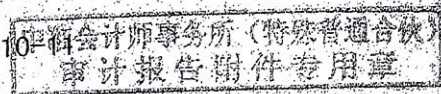 10-11
会计师事务所（特殊普通合伙）
审计报告附件专用章